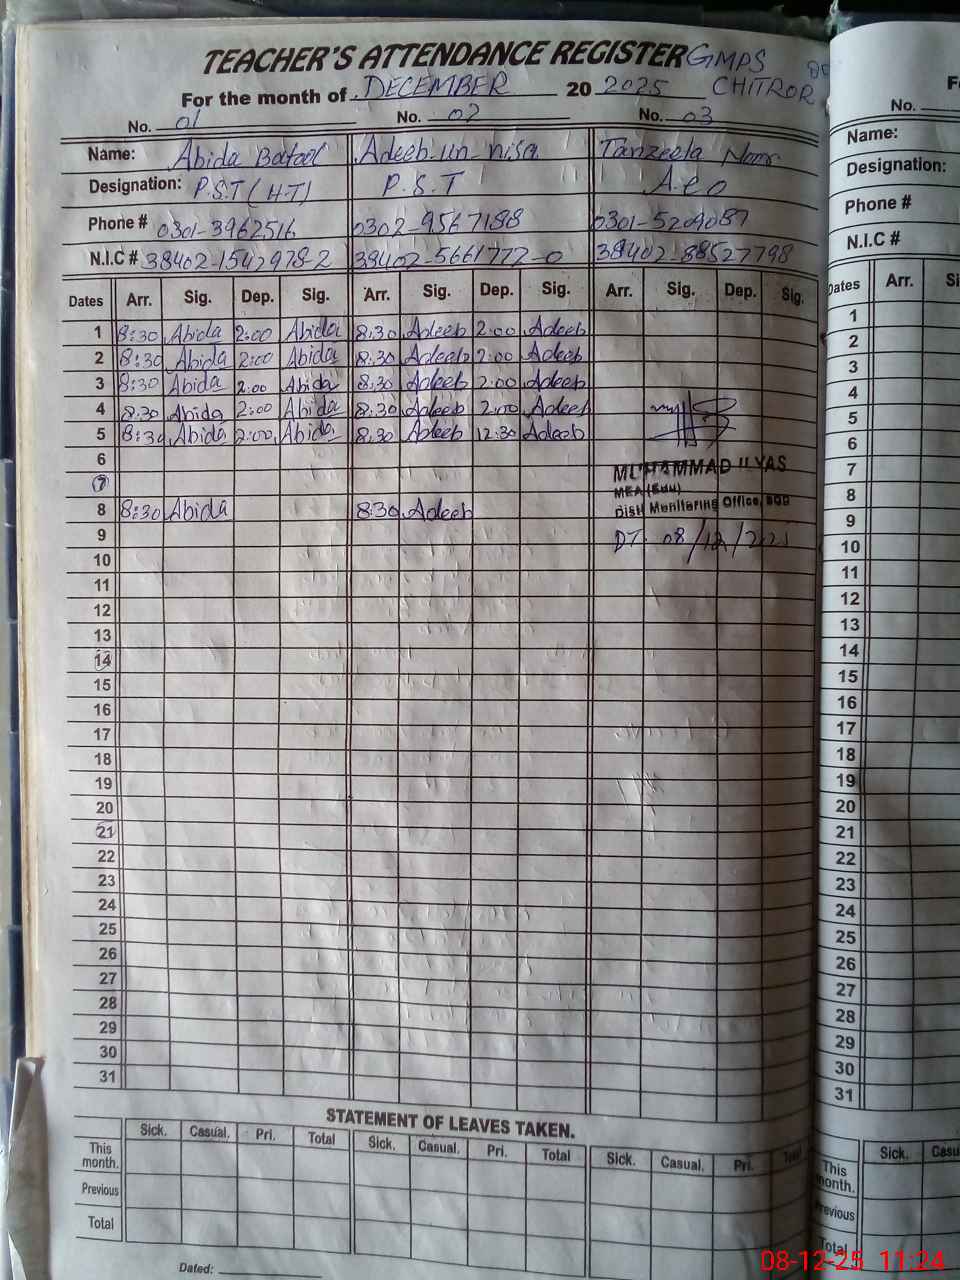 TEACHER'S ATTENDANCE REGISTER GMPS
For the month of DECEMBER 20 2025 CHITROR
No. 01 No. 02 No. 03
Name: Abida Batool Adeeb-un-nisa Tanzeela Noor
Designation: P.S.T (H.T) P.S.T A.e.o
Phone # 0301-3962516 0302-9567188 0301-5209087
N.I.C # 38402-1542978-2 38402-5661772-0 38402-88527798
Dates Arr. Sig. Dep. Sig. Arr. Sig. Dep. Sig. Arr. Sig. Dep. Sig.
1 8:30 Abida 2:00 Abida 8:30 Adeeb 2:00 Adeeb
2 8:30 Abida 2:00 Abida 8:30 Adeeb 2:00 Adeeb
3 8:30 Abida 2:00 Abida 8:30 Adeeb 2:00 Adeeb
4 8:30 Abida 2:00 Abida 8:30 Adeeb 2:00 Adeeb
5 8:30 Abida 2:00 Abida 8:30 Adeeb 12:30 Adeeb
6
7
MUHAMMAD ILYAS
MEA (Edu)
Distt Monitoring Office, SGD
8 8:30 Abida 8:30 Adeeb
9
DT. 08/12/2025
10
11
12
13
14
15
16
17
18
19
20
21
22
23
24
25
26
27
28
29
30
31
STATEMENT OF LEAVES TAKEN.
Sick. Casual. Pri. Total Sick. Casual. Pri. Total Sick. Casual. Pri. Total
This month.
Previous
Total
Dated:
No.
Name:
Designation:
Phone #
N.I.C #
Dates Arr.
1
2
3
4
5
6
7
8
9
10
11
12
13
14
15
16
17
18
19
20
21
22
23
24
25
26
27
28
29
30
31
Sick.
This month.
Previous
Total
08-12-25 11:24